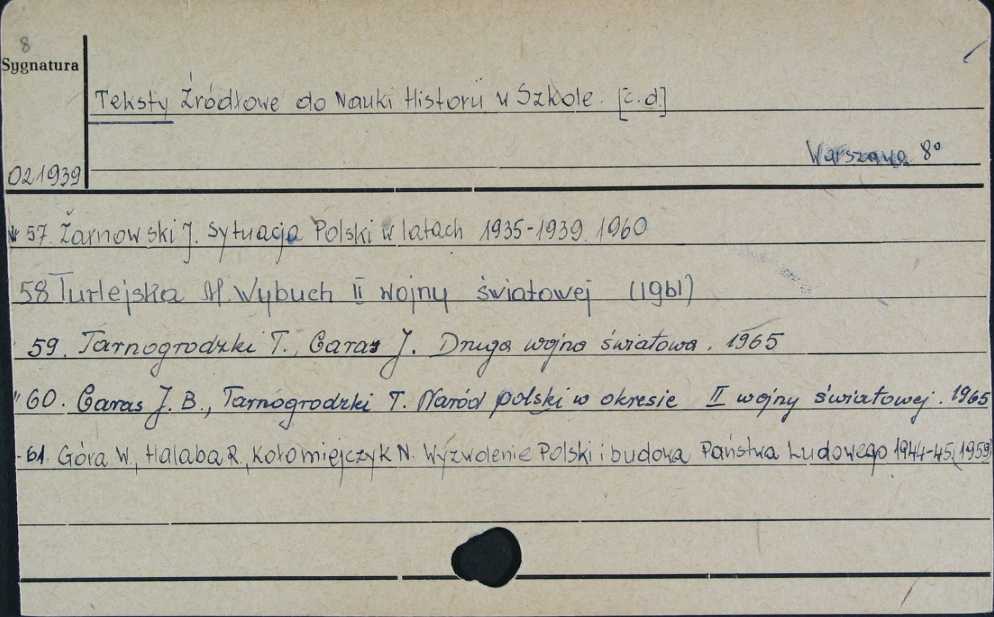 8
Sygnatura
Teksty Źródłowe do Nauki Historii w Szkole. [c.d.]
Warszawa 8°
021939
57. Żarnowski J. Sytuacja Polski w latach 1935-1939. 1960
58 Turlejska M. Wybuch II wojny światowej (1961)
59. Tarnogrodzki T., Garas J. Druga wojna światowa. 1965
"60. Garas J. B., Tarnogrodzki T. Naród polski w okresie II wojny światowej. 1965
61. Góra W., Halaba R., Kołomiejczyk N. Wyzwolenie Polski i budowa Państwa Ludowego 1944-45. (1959)